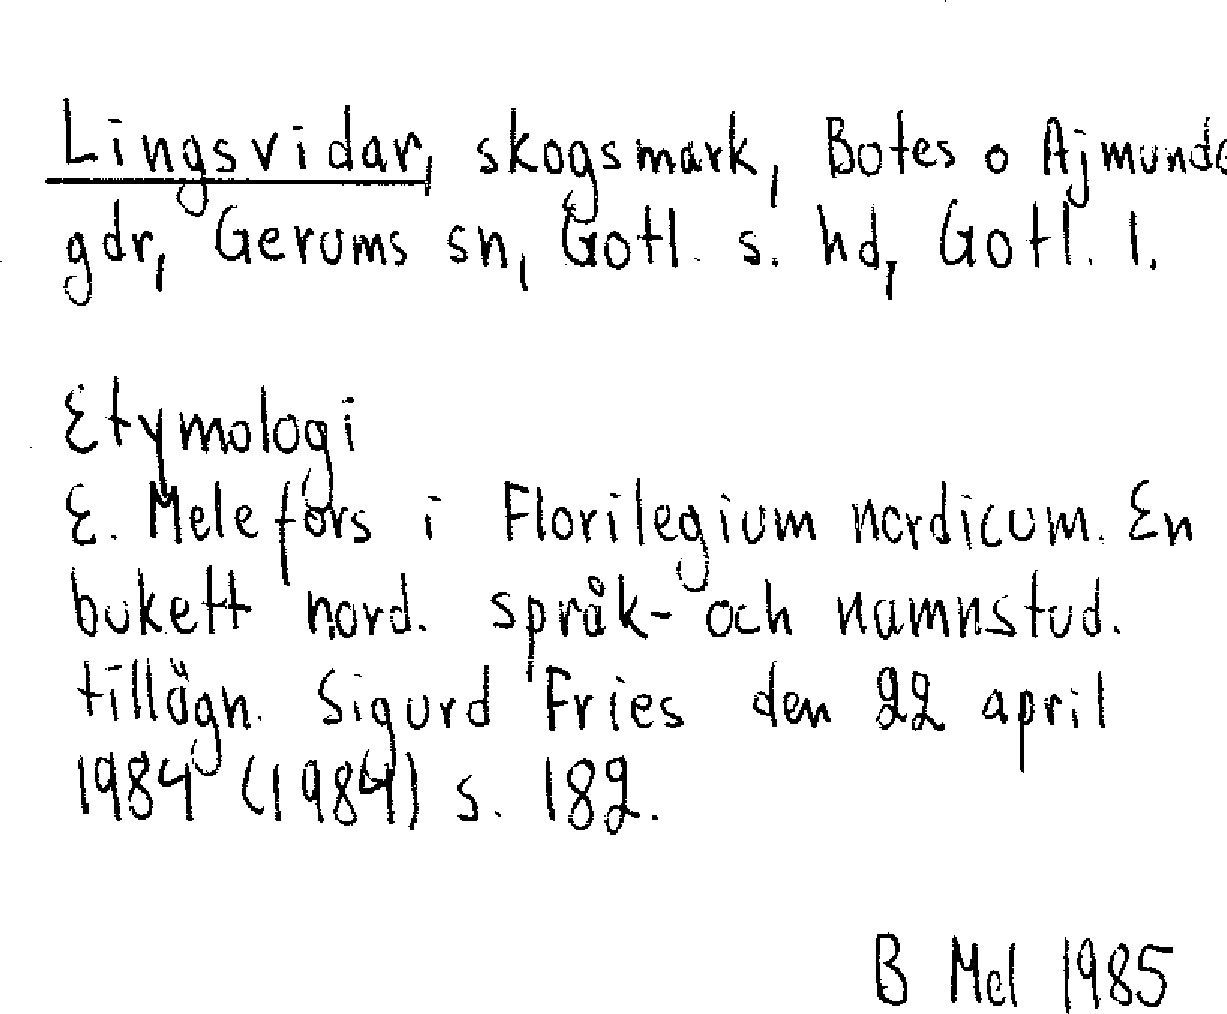 Lingsvidar, skogsmark, Botes o Ajmunde
gdr, Gerums sn, Gotl. s. hd, Gotl. l.
Etymologi
E. Melefors i Florilegium nordicum. En
bukett nord. språk- och namnstud.
tillägn. Sigurd Fries den 22 april
1984 (1984) s. 182.
B Mel 1985